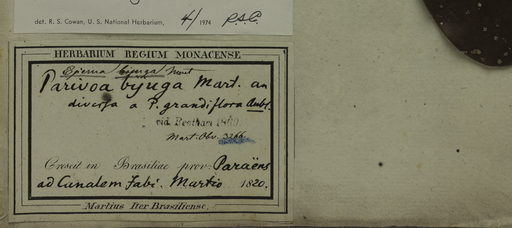 det. R. S. Cowan, U. S. National Herbarium, 4/ 1974 R.S.C.
HERBARIUM REGIUM MONACENSE
Eperua bijuga Mart
Parivoa bijuga Mart. an
diversa a P. grandiflora Aubl.
vid. Bentham 1869
Mart. Obs. 3266
Crescit in Brasiliae prov. Paraëns
ad Canalem Jabi. Martio 1820.
Martius Iter Brasiliense.